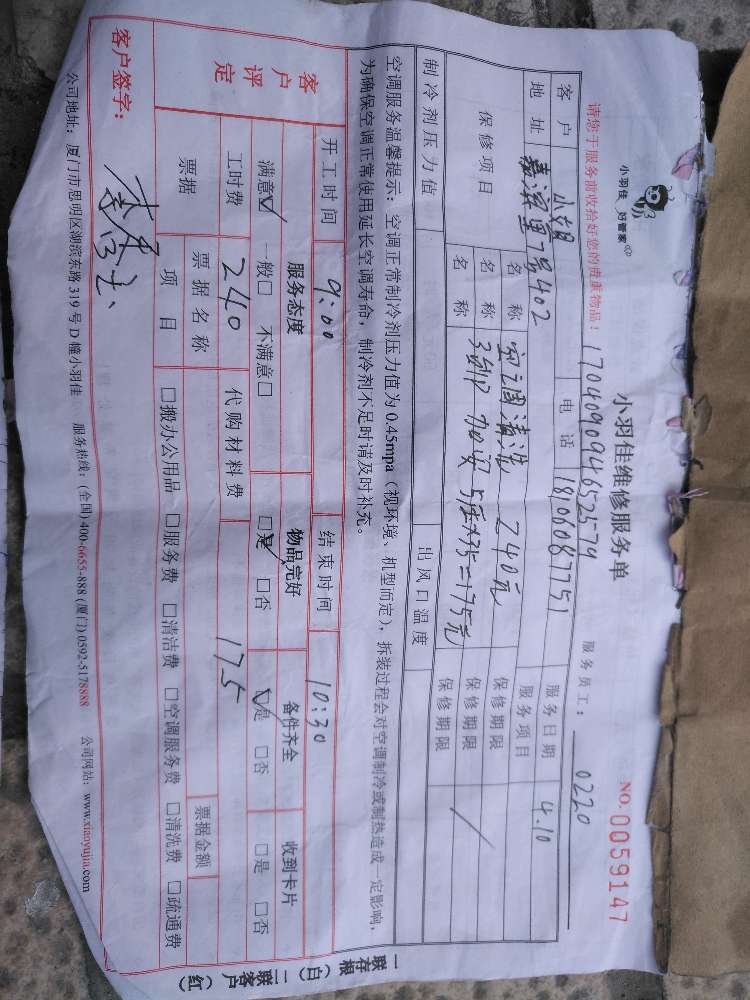 小羽佳 好管家
小羽佳维修服务单
NO. 0059147
请您于服务前收拾好您的贵重物品!
170409094652579
服务员工: 0220
客户 小姐 电话 18106087751 服务日期 4.10
地址 嘉滨里7号402 服务项目
保修项目 名称 空调清洗 240元 保修期限
名称 3台 加液 5压×35=175元 保修期限
名称 保修期限
制冷剂压力值 出风口温度
空调服务温馨提示:空调正常制冷剂压力值为0.45mpa(视环境、机型而定),拆装过程会对空调制冷或制热造成一定影响,
为确保空调正常使用延长空调寿命,制冷剂不足时请及时补充。
开工时间 9:00 结束时间 10:30
客户评定 服务态度 物品完好 备件齐全 收到卡片
满意☑ 一般□ 不满意□ ☑是 □否 ☑是 □否 □是 □否
工时费 240 代购材料费 175
票据 票据名称 票据金额
项目 □搬办公用品 □服务费 □清洁费 □空调服务费 □清洗费 □疏通费
客户签字:
公司地址:厦门市思明区湖滨东路319号D幢小羽佳 服务热线:(全国)400-6655-888 (厦门)0592-5178888 公司网站:www.xiaoyujia.com
一联存根(白) 二联客户(红)